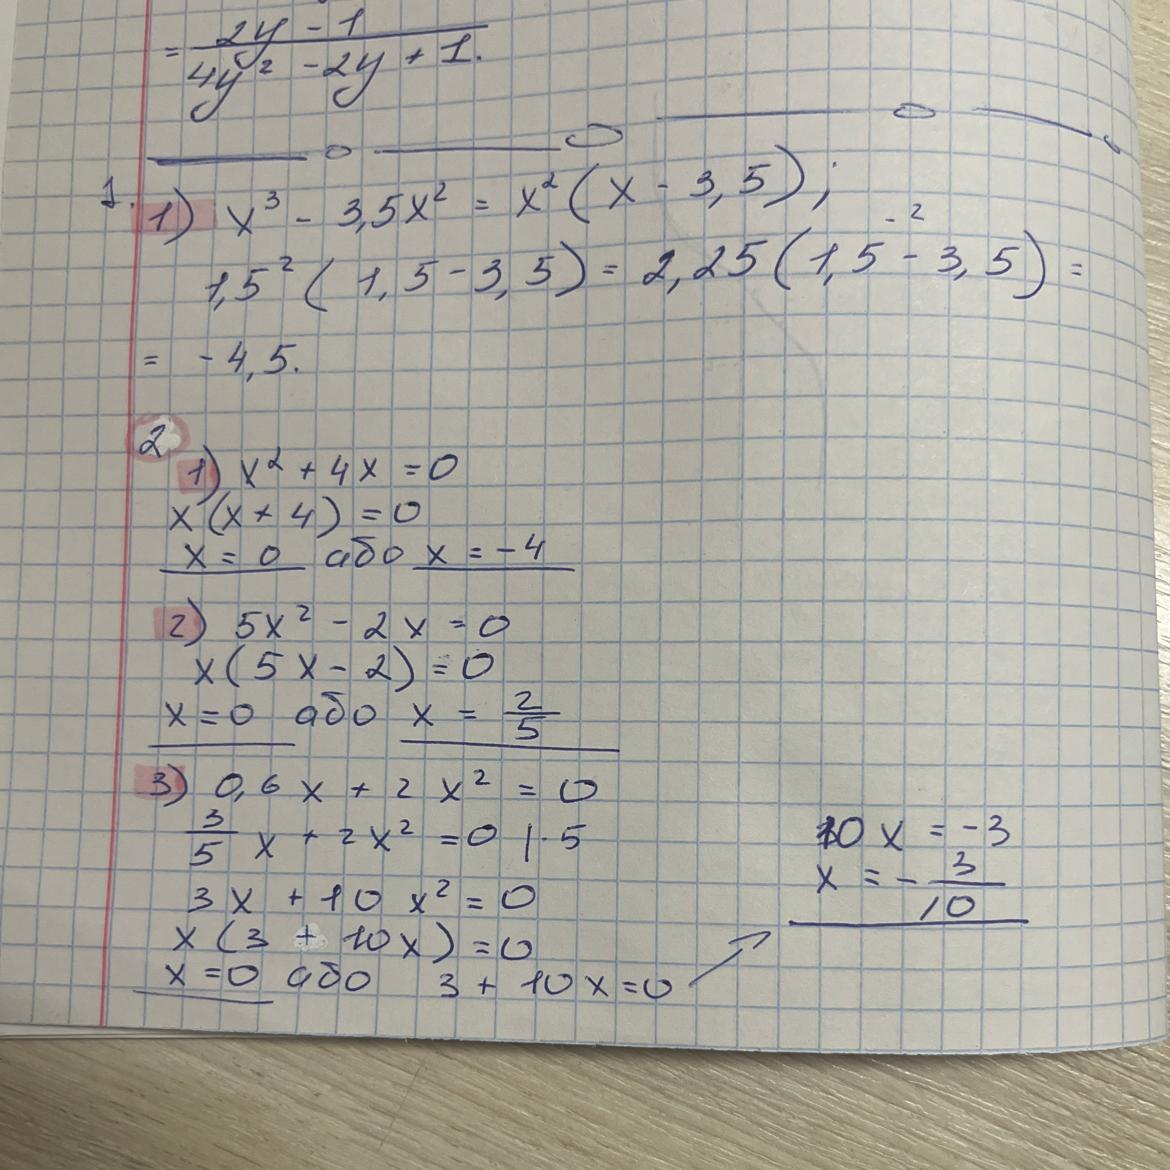 = (2y - 1)/(4y² - 2y + 1).
1.
1) x³ - 3,5x² = x²(x - 3,5);
-2
1,5²(1,5 - 3,5) = 2,25(1,5 - 3,5) =
= -4,5.
2
1) x² + 4x = 0
x(x + 4) = 0
x = 0 або x = -4
2) 5x² - 2x = 0
x(5x - 2) = 0
x = 0 або x = 2/5
3) 0,6x + 2x² = 0
3/5 x + 2x² = 0 |·5
3x + 10x² = 0
x(3 + 10x) = 0
x = 0 або 3 + 10x = 0
10x = -3
x = -3/10